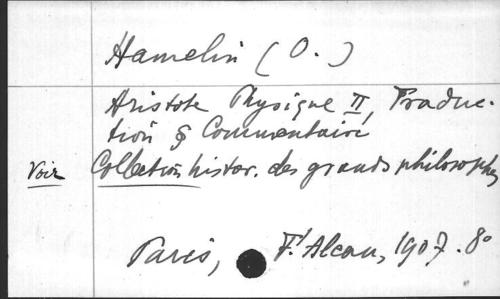 Hamelin (O.)
Aristote Physique II, Traduc-
tion & Commentaire
Voir Collection histor. des grands philosophes
Paris, F. Alcan, 1907. 8º